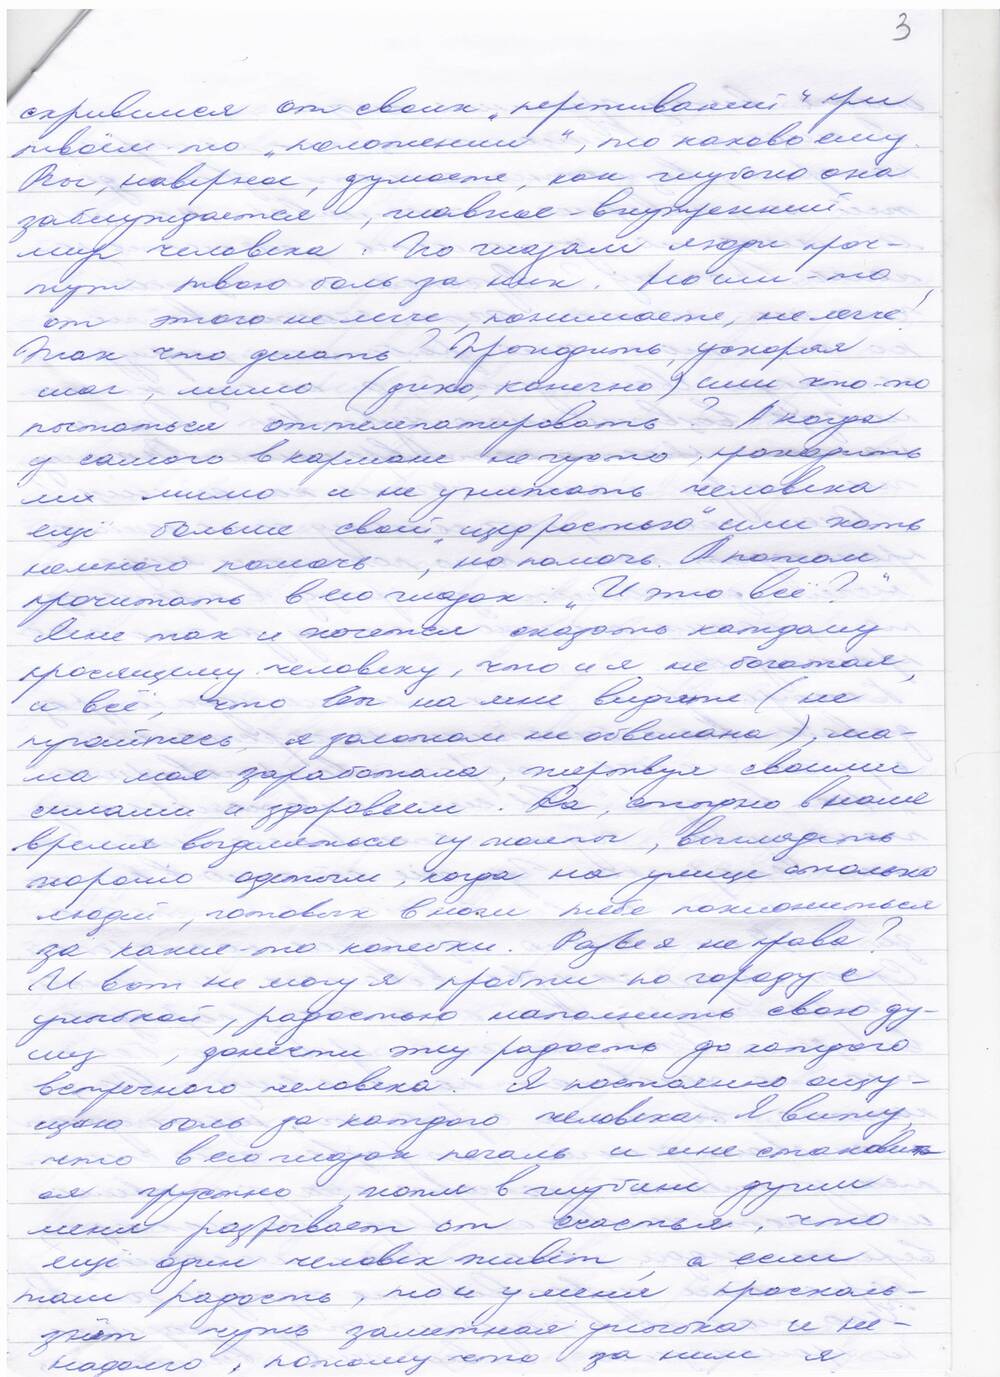 3
скривимся от своих „переживаний" при
твоём-то „положении", то каково ему.
Вы, наверное, думаете, как глубоко она
заблуждается, главное - внутренний
мир человека. По глазам люди проч-
тут твою боль за них. Но им-то
от этого не легче, понимаете, не легче!
Так что делать? Проходить, ускоряя
шаг, мимо (дико, конечно) или что-то
пытаться
у самого в кармане не густо, проходить
ли мимо и не унижать человека
ещё больше своей „щедростью" или хоть
немного помочь, но помочь. А потом
прочитать в его глазах: „И это всё?"
Мне так и хочется сказать каждому
просящему человеку, что и я не богатая,
и всё, что вы на мне видите (не
пугайтесь, я золотом не обвешана), ма-
ма моя заработала, жертвуя своими
силами и здоровьем. Да, стыдно в наше
время выделяться из толпы, выглядеть
хорошо одетым, когда на улице столько
людей, готовых в ноги тебе поклониться
за какие-то копейки. Разве я не права?
И вот не могу я пройти по городу с
улыбкой, радостью наполнить свою ду-
шу, донести эту радость до каждого
встречного человека. Я постоянно ощу-
щаю боль за каждого человека. Я вижу,
что в его глазах печаль и мне становит-
ся грустно, хотя в глубине души
меня разрывает от счастья, что
ещё один человек живёт, а если
там радость, то и у меня проскаль-
знёт чуть заметная улыбка и не-
надолго, потому что за ним я